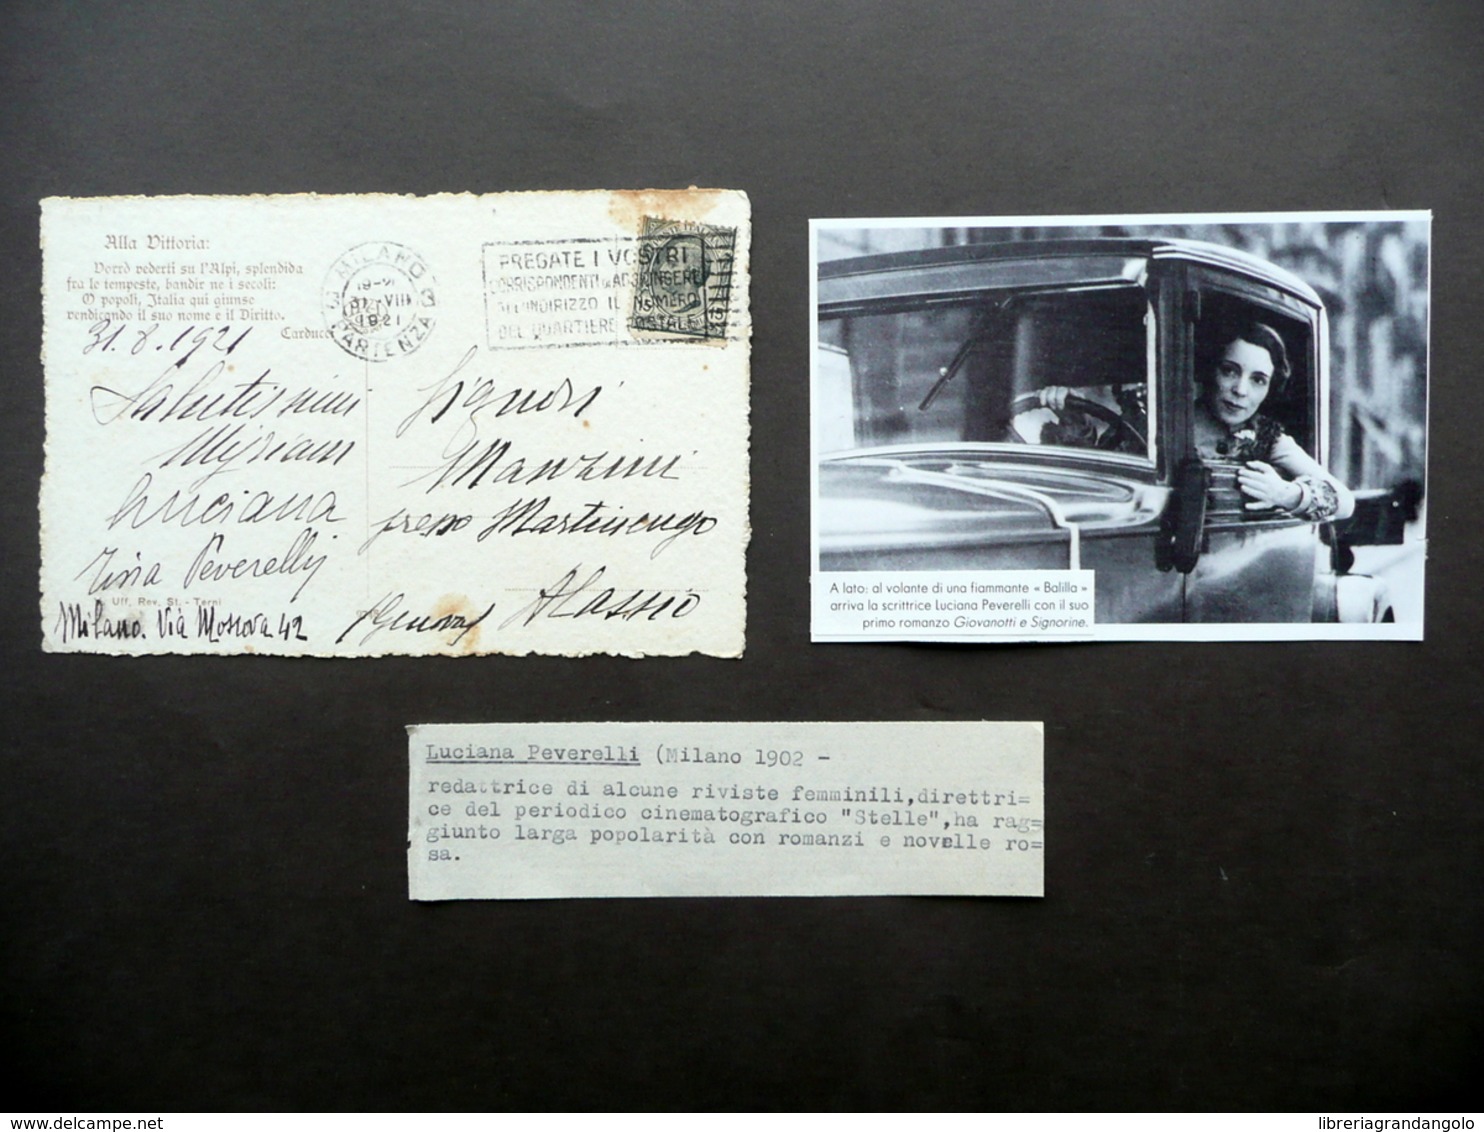 Alla Vittoria:
Vorrò vederti su l'Alpi, splendida
fra le tempeste, bandir ne i secoli:
O popoli, Italia qui giunse
vendicando il suo nome e il Diritto.
Carducci
31.8.1921
Salutissimi
Myriam
Luciana
Tina Peverelli
Uff. Rev. St. - Terni
Milano. Via Moscova 42
MILANO
31 VIII
1921
PARTENZA
PREGATE I VOSTRI
CORRISPONDENTI DI AGGIUNGERE
ALL'INDIRIZZO IL NUMERO
DEL QUARTIERE POSTALE
Signori
Manzini
presso Martinengo
Alassio
(Genova)
A lato: al volante di una fiammante « Balilla »
arriva la scrittrice Luciana Peverelli con il suo
primo romanzo Giovanotti e Signorine.
Luciana Peverelli (Milano 1902 -
redattrice di alcune riviste femminili,direttri=
ce del periodico cinematografico "Stelle",ha rag=
giunto larga popolarità con romanzi e novelle ro=
sa.
delcampe.net
libreriagrandangolo